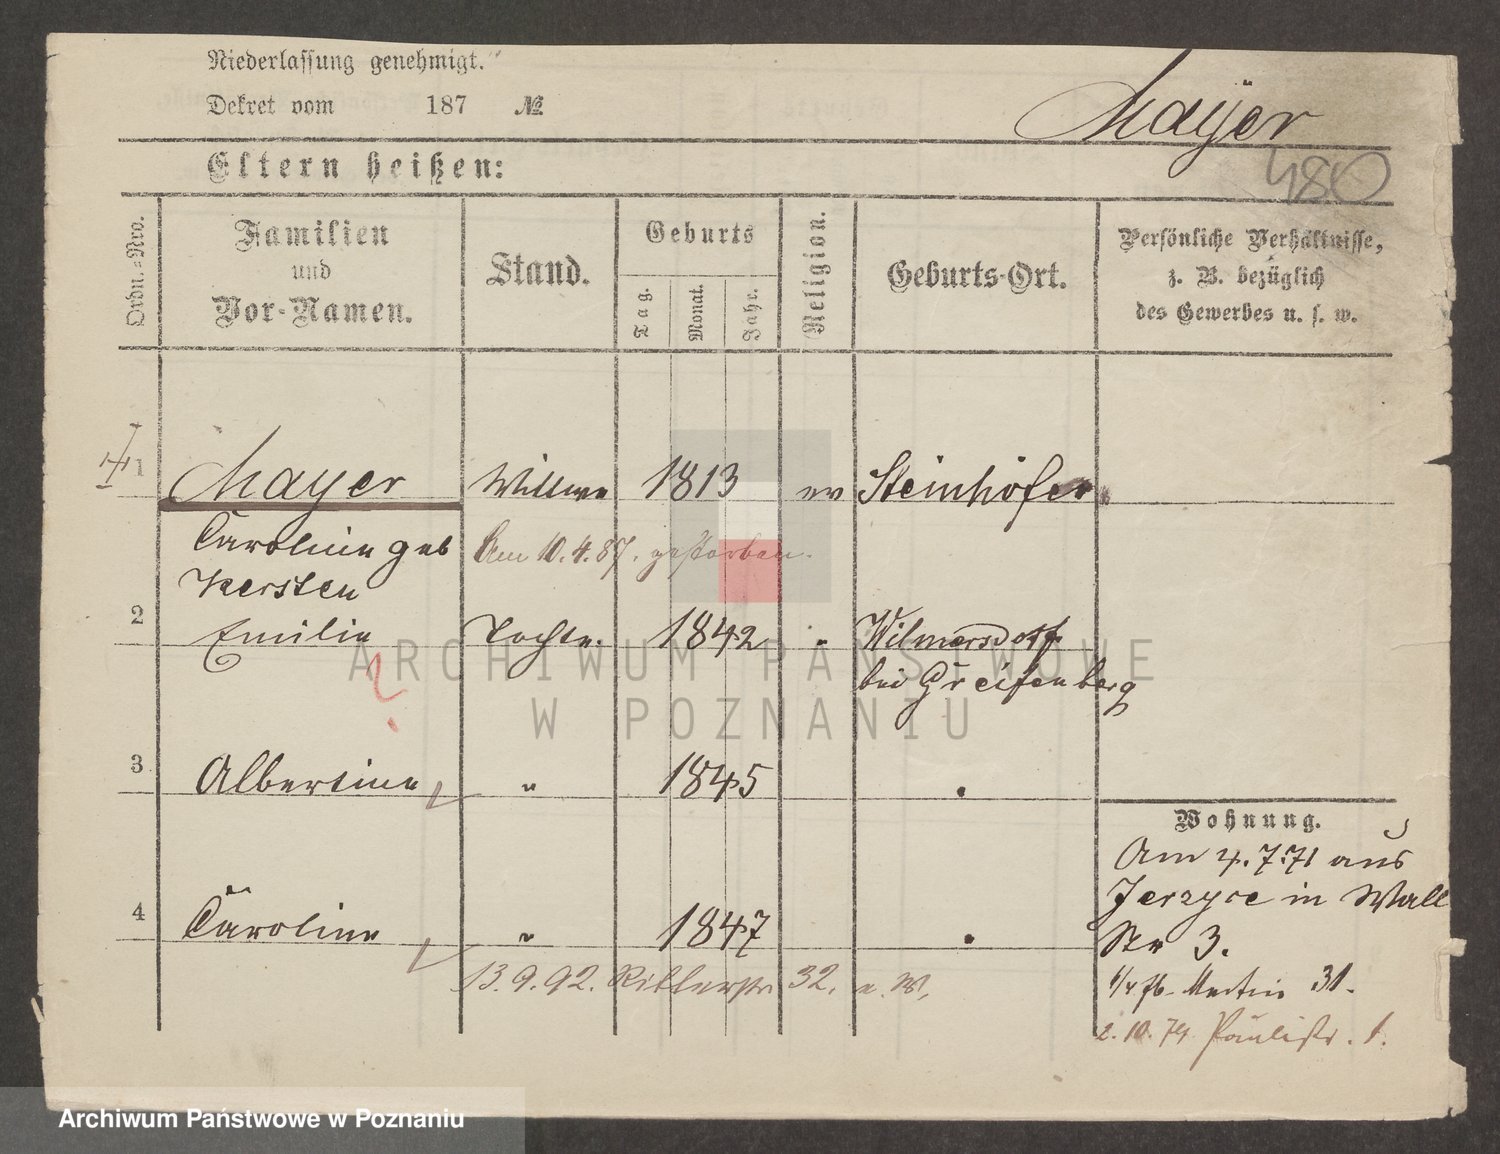 Niederlassung genehmigt.
Dekret vom 187 №
Mayer
480
Eltern heißen:
Ordn.=Nro.
Familien
und
Vor-Namen.
Stand.
Geburts
Tag.
Monat.
Jahr.
Religion.
Geburts-Ort.
Persönliche Verhältnisse,
z. B. bezüglich
des Gewerbes u. s. w.
1 Mayer Wittwe 1813 ev Steinhöfer
Caroline geb Am 10.4.87. gestorben.
Kersten
2 Emilie Tochtr. 1842 " Wilmersdorf
bei Greifenberg
?
3 Albertine " 1845 "
4 Caroline " 1847 "
13.9.92. Ritterstr 32. n. W.
Wohnung.
Am 4.7.71 aus
Jerzyce in Wall
Str 3.
Martin 31.
2.10.74 Paulistr. 1.
ARCHIWUM PAŃSTWOWE
W POZNANIU
Archiwum Państwowe w Poznaniu